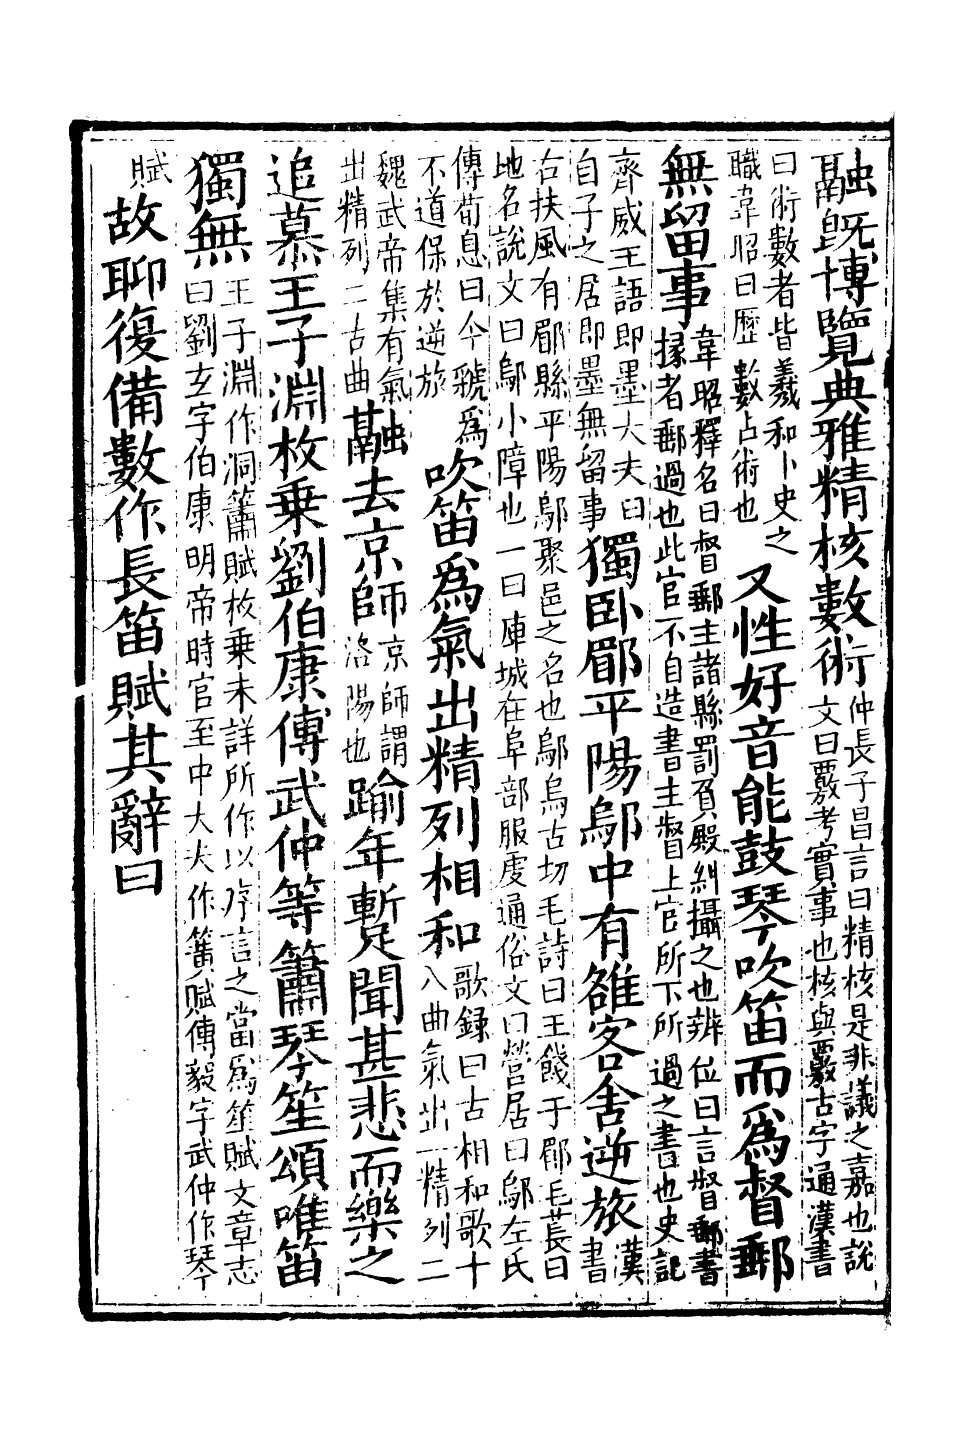 融既博覽典雅精核數術
仲長子昌言曰精核是非議之嘉也說
文曰覈考實事也核與覈古字通漢書
曰術數者皆羲和卜史之
職韋昭曰歷數占術也
又性好音能鼓琴吹笛而爲督郵
無留事
韋昭釋名曰督郵主諸縣罰負殿糾攝之也辨位曰言督郵書
掾者郵過也此官不自造書主督上官所下所過之書也史記
齊威王語即墨大夫曰
自子之居即墨無留事
獨卧郿平陽鄔中有雒客舍逆旅
漢
書
右扶風有郿縣平陽鄔聚邑之名也鄔烏古切毛詩曰王餞于郿毛萇曰
地名說文曰鄔小障也一曰庳城在阜部服虔通俗文曰營居曰鄔左氏
傳荀息曰今虢爲
不道保於逆旅
吹笛爲氣出精列相和
歌録曰古相和歌十
八曲氣出一精列二
魏武帝集有氣
出精列二古曲
融去京師
京師謂
洛陽也
踰年蹔聞甚悲而樂之
追慕王子淵枚乗劉伯康傅武仲等簫琴笙頌唯笛
獨無
王子淵作洞簫賦枚乗未詳所作以序言之當爲笙賦文章志
曰劉玄字伯康明帝時官至中大夫作簧賦傅毅字武仲作琴
賦
故聊復備數作長笛賦其辭曰